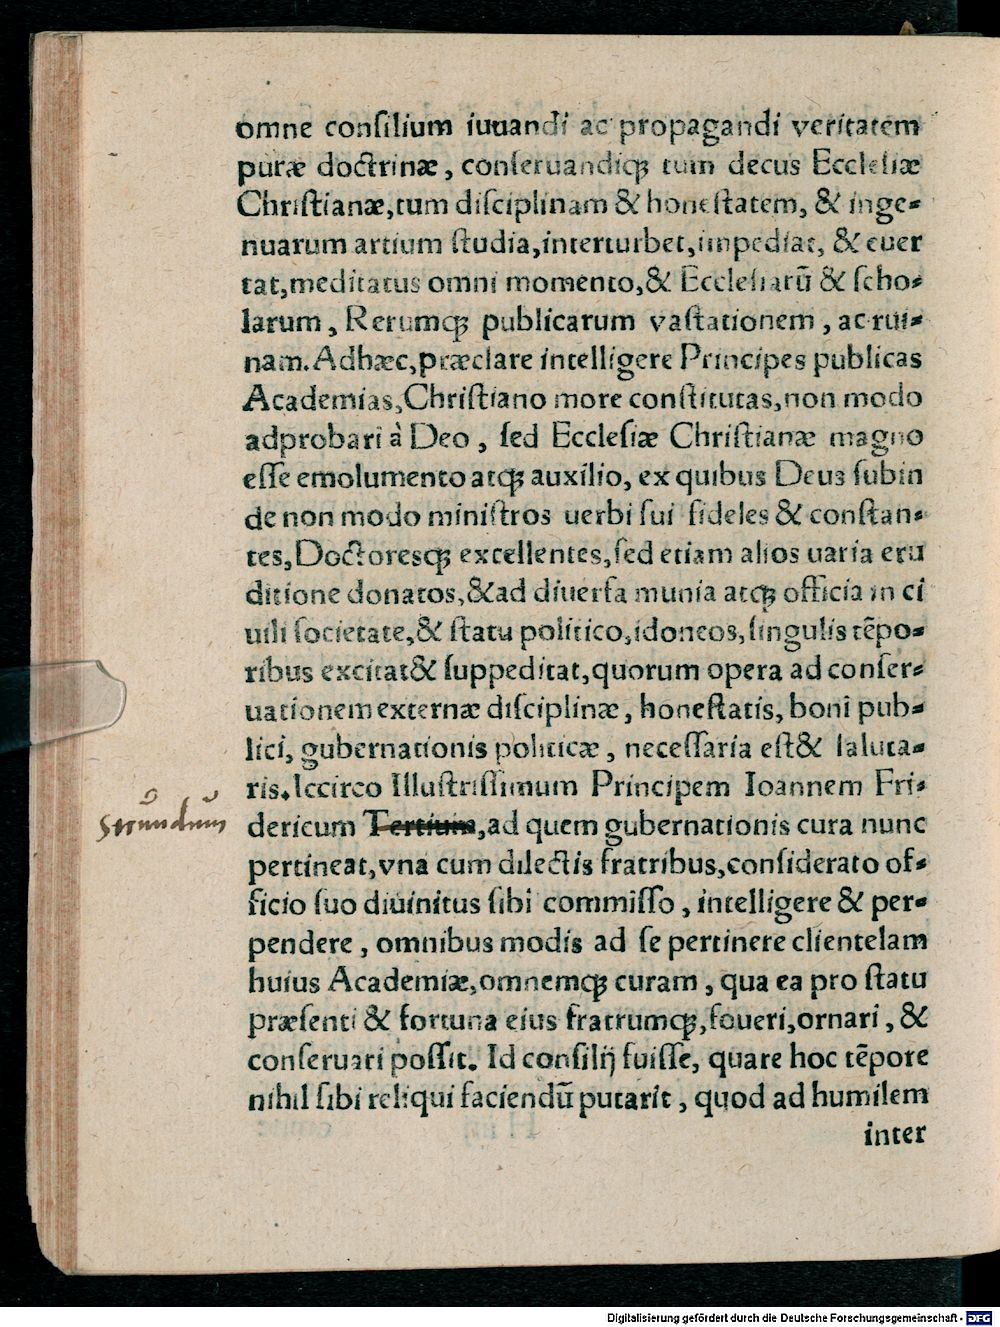 omne conſilium iuuandi ac propagandi veritatem
puræ doctrinæ, conſeruandiqꝫ tum decus Eccleſiæ
Chriſtianæ, tum diſciplinam & honeſtatem, & inge⸗
nuarum artium ſtudia, interturbet, impediat, & euer
tat, meditatus omni momento, & Eccleſiarū & ſcho⸗
larum, Rerumqꝫ publicarum vaſtationem, ac rui⸗
nam. Adhæc, præclare intelligere Principes publicas
Academias, Chriſtiano more conſtitutas, non modo
adprobari à Deo, ſed Eccleſiæ Chriſtianæ magno
eſſe emolumento atqꝫ auxilio, ex quibus Deus ſubin
de non modo miniſtros uerbi ſui fideles & conſtan⸗
tes, Doctoresqꝫ excellentes, ſed etiam alios uaria eru
ditione donatos, & ad diuerſa munia atqꝫ officia in ci
uili ſocietate, & ſtatu politico, idoneos, ſingulis tēpo⸗
ribus excitat & ſuppeditat, quorum opera ad conſer⸗
uationem externæ diſciplinæ, honeſtatis, boni pub⸗
lici, gubernationis politicæ, neceſſaria eſt & ſaluta⸗
ris. Iccirco Illuſtriſſimum Principem Ioannem Fri⸗
Secundum
dericum Tertium, ad quem gubernationis cura nunc
pertineat, vna cum dilectis fratribus, conſiderato of⸗
ficio ſuo diuinitus ſibi commiſſo, intelligere & per⸗
pendere, omnibus modis ad ſe pertinere clientelam
huius Academiæ, omnemqꝫ curam, qua ea pro ſtatu
præſenti & fortuna eius fratrumqꝫ, foueri, ornari, &
conſeruari poſſit. Id conſilij fuiſſe, quare hoc tēpore
nihil ſibi reliqui faciendū putarit, quod ad humilem
inter
Digitalisierung gefördert durch die Deutsche Forschungsgemeinschaft - DFG